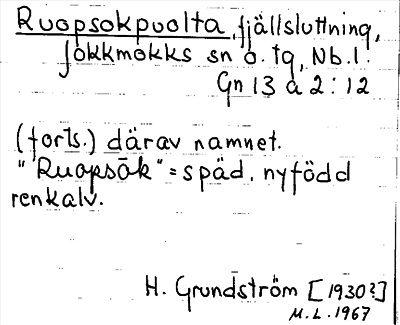 Ruopsokpuolta, fjällsluttning,
Jokkmokks sn o. tg, Nb.l.
Gn 13 a 2 : 12
(forts.) därav namnet.
"Ruopsōk" = späd, nyfödd
renkalv.
H. Grundström [1930?]
M.L. 1967